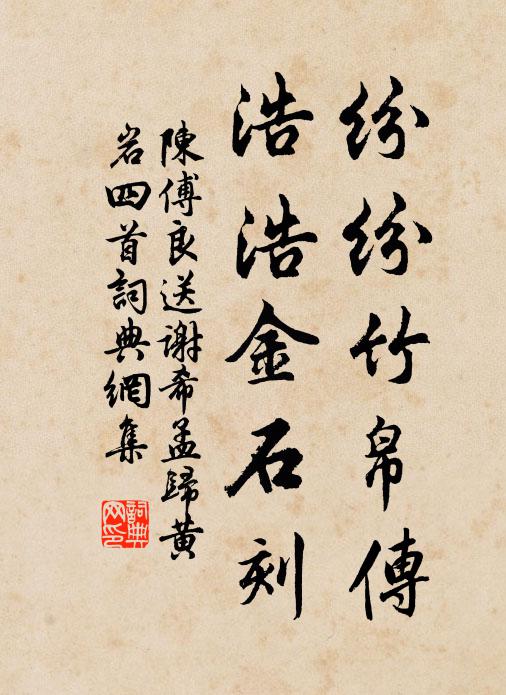 紛紛竹帛傳
浩浩金石刻
陳傅良送謝希孟歸黃
岩四首詞典網集
詞典
网印